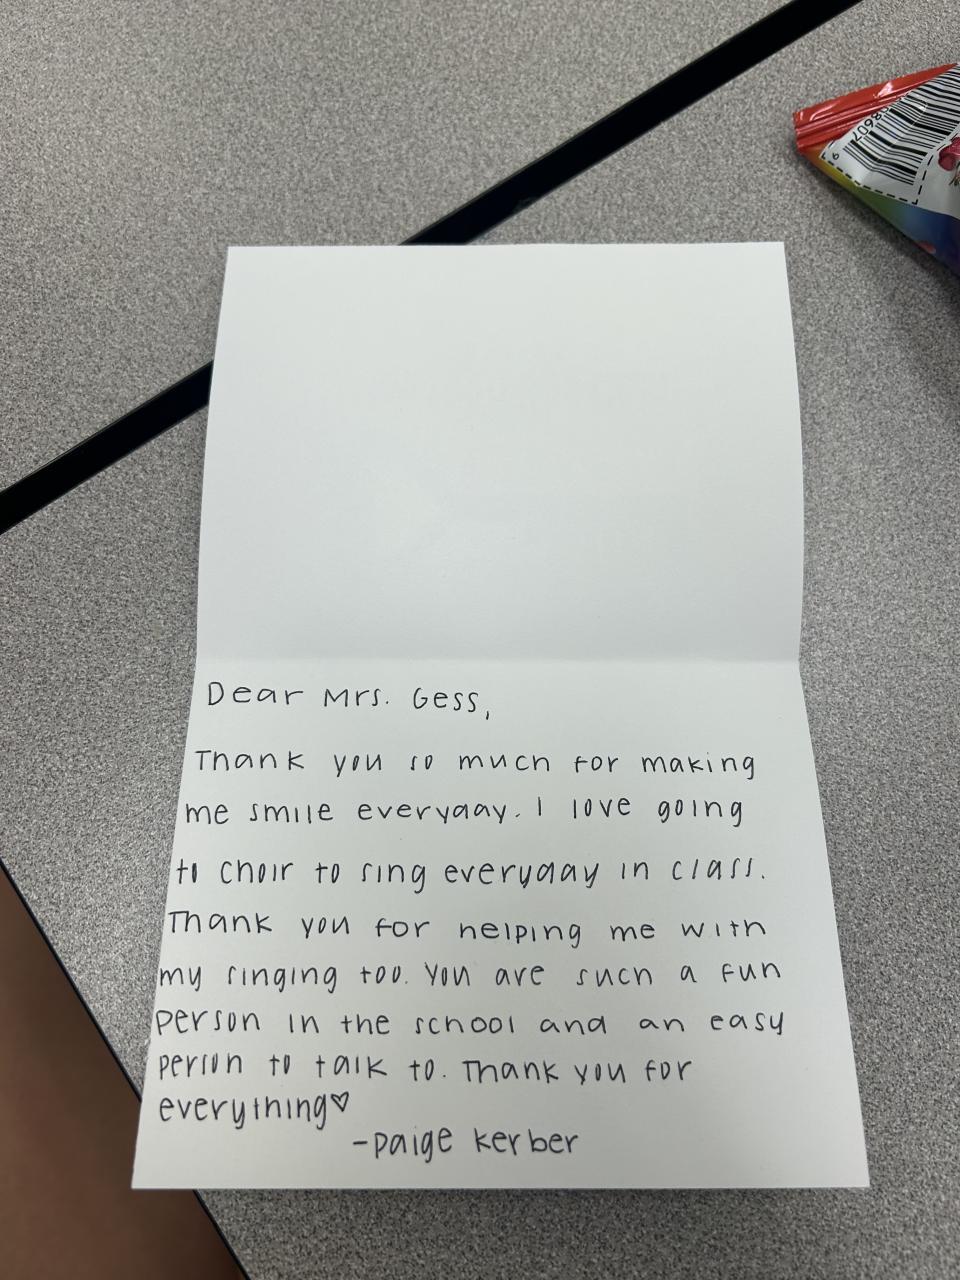 Dear Mrs. Gess,
Thank you so much for making
me smile everyday. I love going
to choir to sing everyday in class.
Thank you for helping me with
my singing too. You are such a fun
person in the school and an easy
person to talk to. Thank you for
everything♡
-Paige Kerber